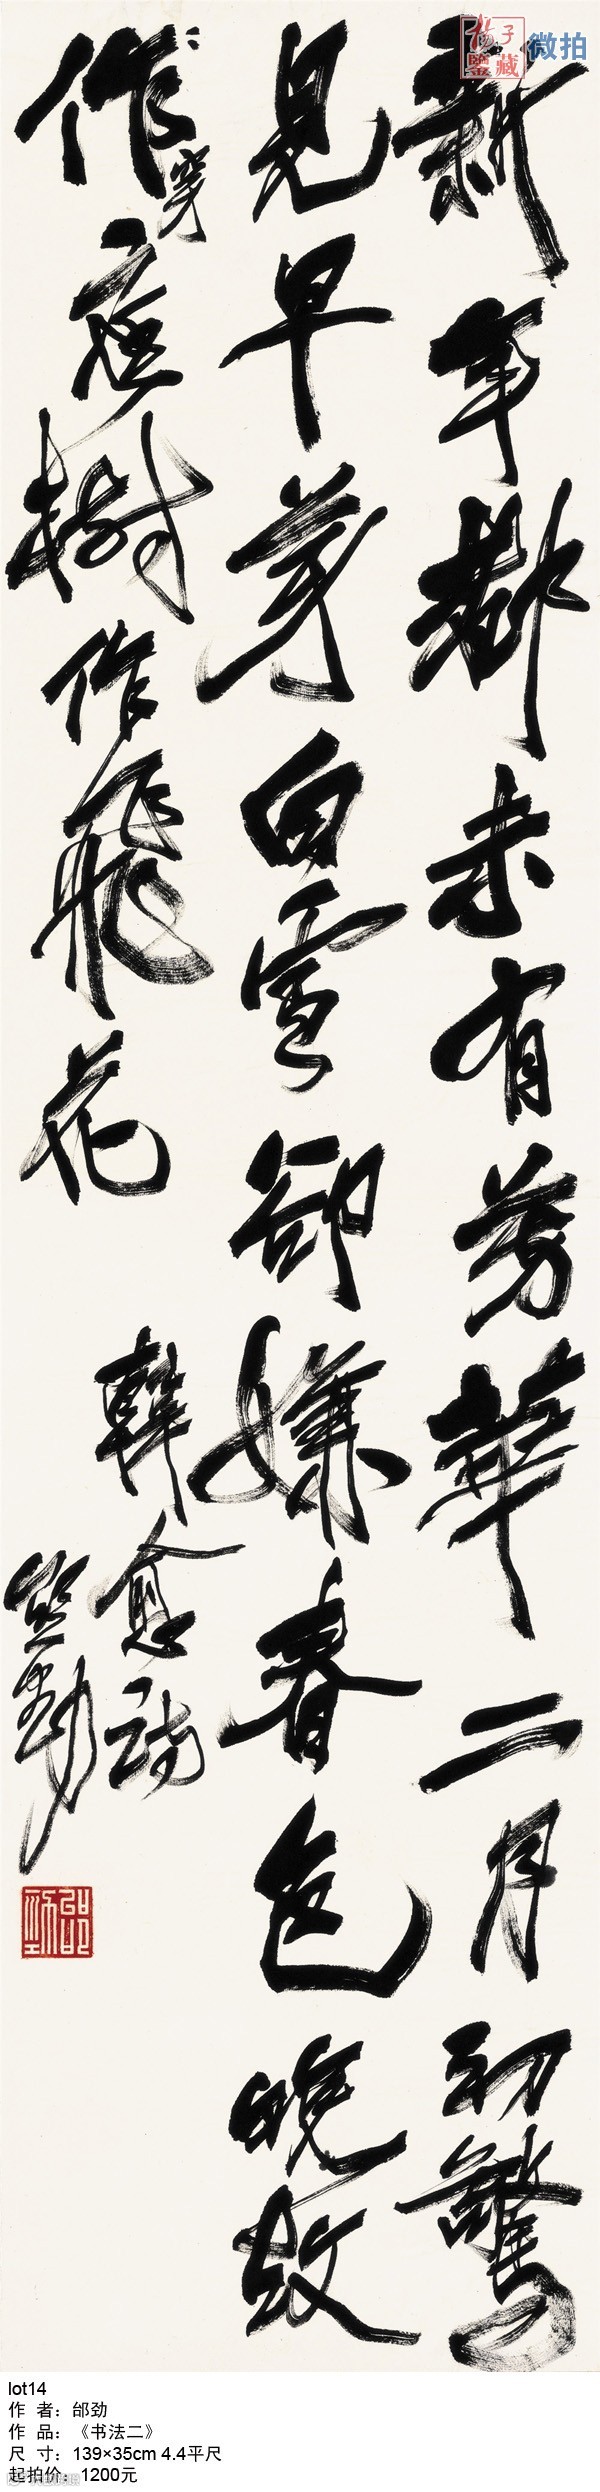 扬子
鑒藏
微拍
新年都未有芳華二月初驚
見早芽白雪卻嫌春色晚故
作穿庭樹作飛花
韓愈詩
邰勁
lot14
作 者：邰劲
作 品：《书法二》
尺 寸：139×35cm 4.4平尺
起拍价：1200元